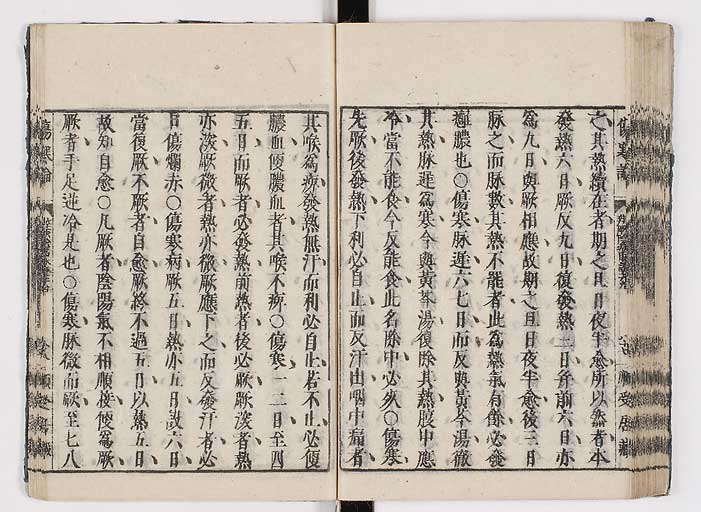 傷寒論
之其熱續在者期之旦日夜半愈所以然者本
發熱六日厥反九日復發熱三日并前六日亦
爲九日與厥相應故期之旦日夜半愈後三日
脉之而脉數其熱不罷者此爲熱氣有餘必發
癰膿也○傷寒脉遲六七日而反與黃芩湯徹
其熱脉遲爲寒今與黃芩湯復除其熱腹中應
冷當不能食今反能食此名除中必死○傷寒
先厥後發熱下利必自止而反汗出咽中痛者
其喉爲痹發熱無汗而利必自止若不止必便
膿血便膿血者其喉不痹○傷寒一二日至四
五日而厥者必發熱前熱者後必厥厥深者熱
亦深厥微者熱亦微厥應下之而反發汗者必
口傷爛赤○傷寒病厥五日熱亦五日設六日
當復厥不厥者自愈厥終不過五日以熱五日
故知自愈○凡厥者陰陽氣不相順接便爲厥
厥者手足逆冷是也○傷寒脉微而厥至七八
傷寒論